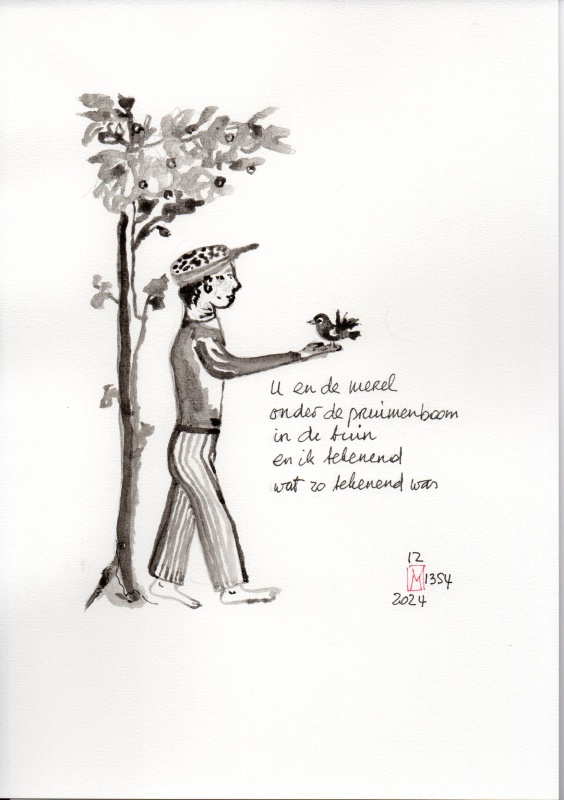 U en de merel
onder de pruimenboom
in de tuin
en ik tekenend
wat zo tekenend was
12
M 1354
2024